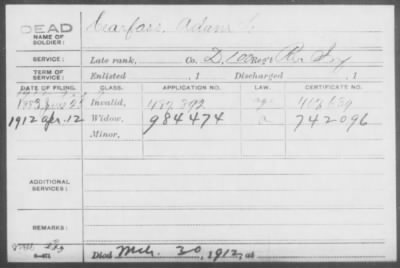 DEAD
NAME OF SOLDIER: Cearfoss, Adam
SERVICE: Late rank, Co. D. 200 Reg't Pa Inf
TERM OF SERVICE: Enlisted , 1 Discharged , 1
DATE OF FILING. CLASS. APPLICATION NO. LAW. CERTIFICATE NO.
Invalid,
1912 Apr. 12 Widow, 984474 742096
Minor,
ADDITIONAL SERVICES:
REMARKS:
Died Mch. 30, 1912, at